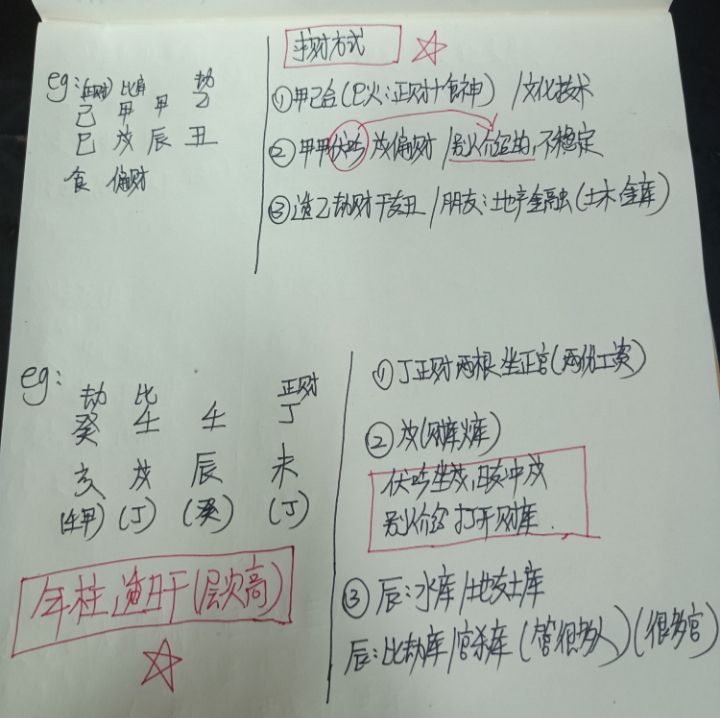 eg: (正财) 比肩 劫
己 甲 甲 乙
巳 戌 辰 丑
食 偏财
求财方式
①甲己合(巳火:正财+食神) /文化技术
②甲甲伏吟 戌偏财 /别人介绍的,不稳定
③透乙劫财 干支丑 /朋友:地产金融(土木 金库)
eg:
劫 比 正财
癸 壬 壬 丁
亥 戌 辰 未
(壬甲) (丁) (癸) (丁)
年柱透日干(层次高)
①丁正财两根 坐正官(两份工资)
②戌(财库火库)
伏吟坐戌,日支冲戌
别人介绍 打开财库.
③辰:水库/地支土库
辰:比劫库/官杀库(管很多人)(很多官)